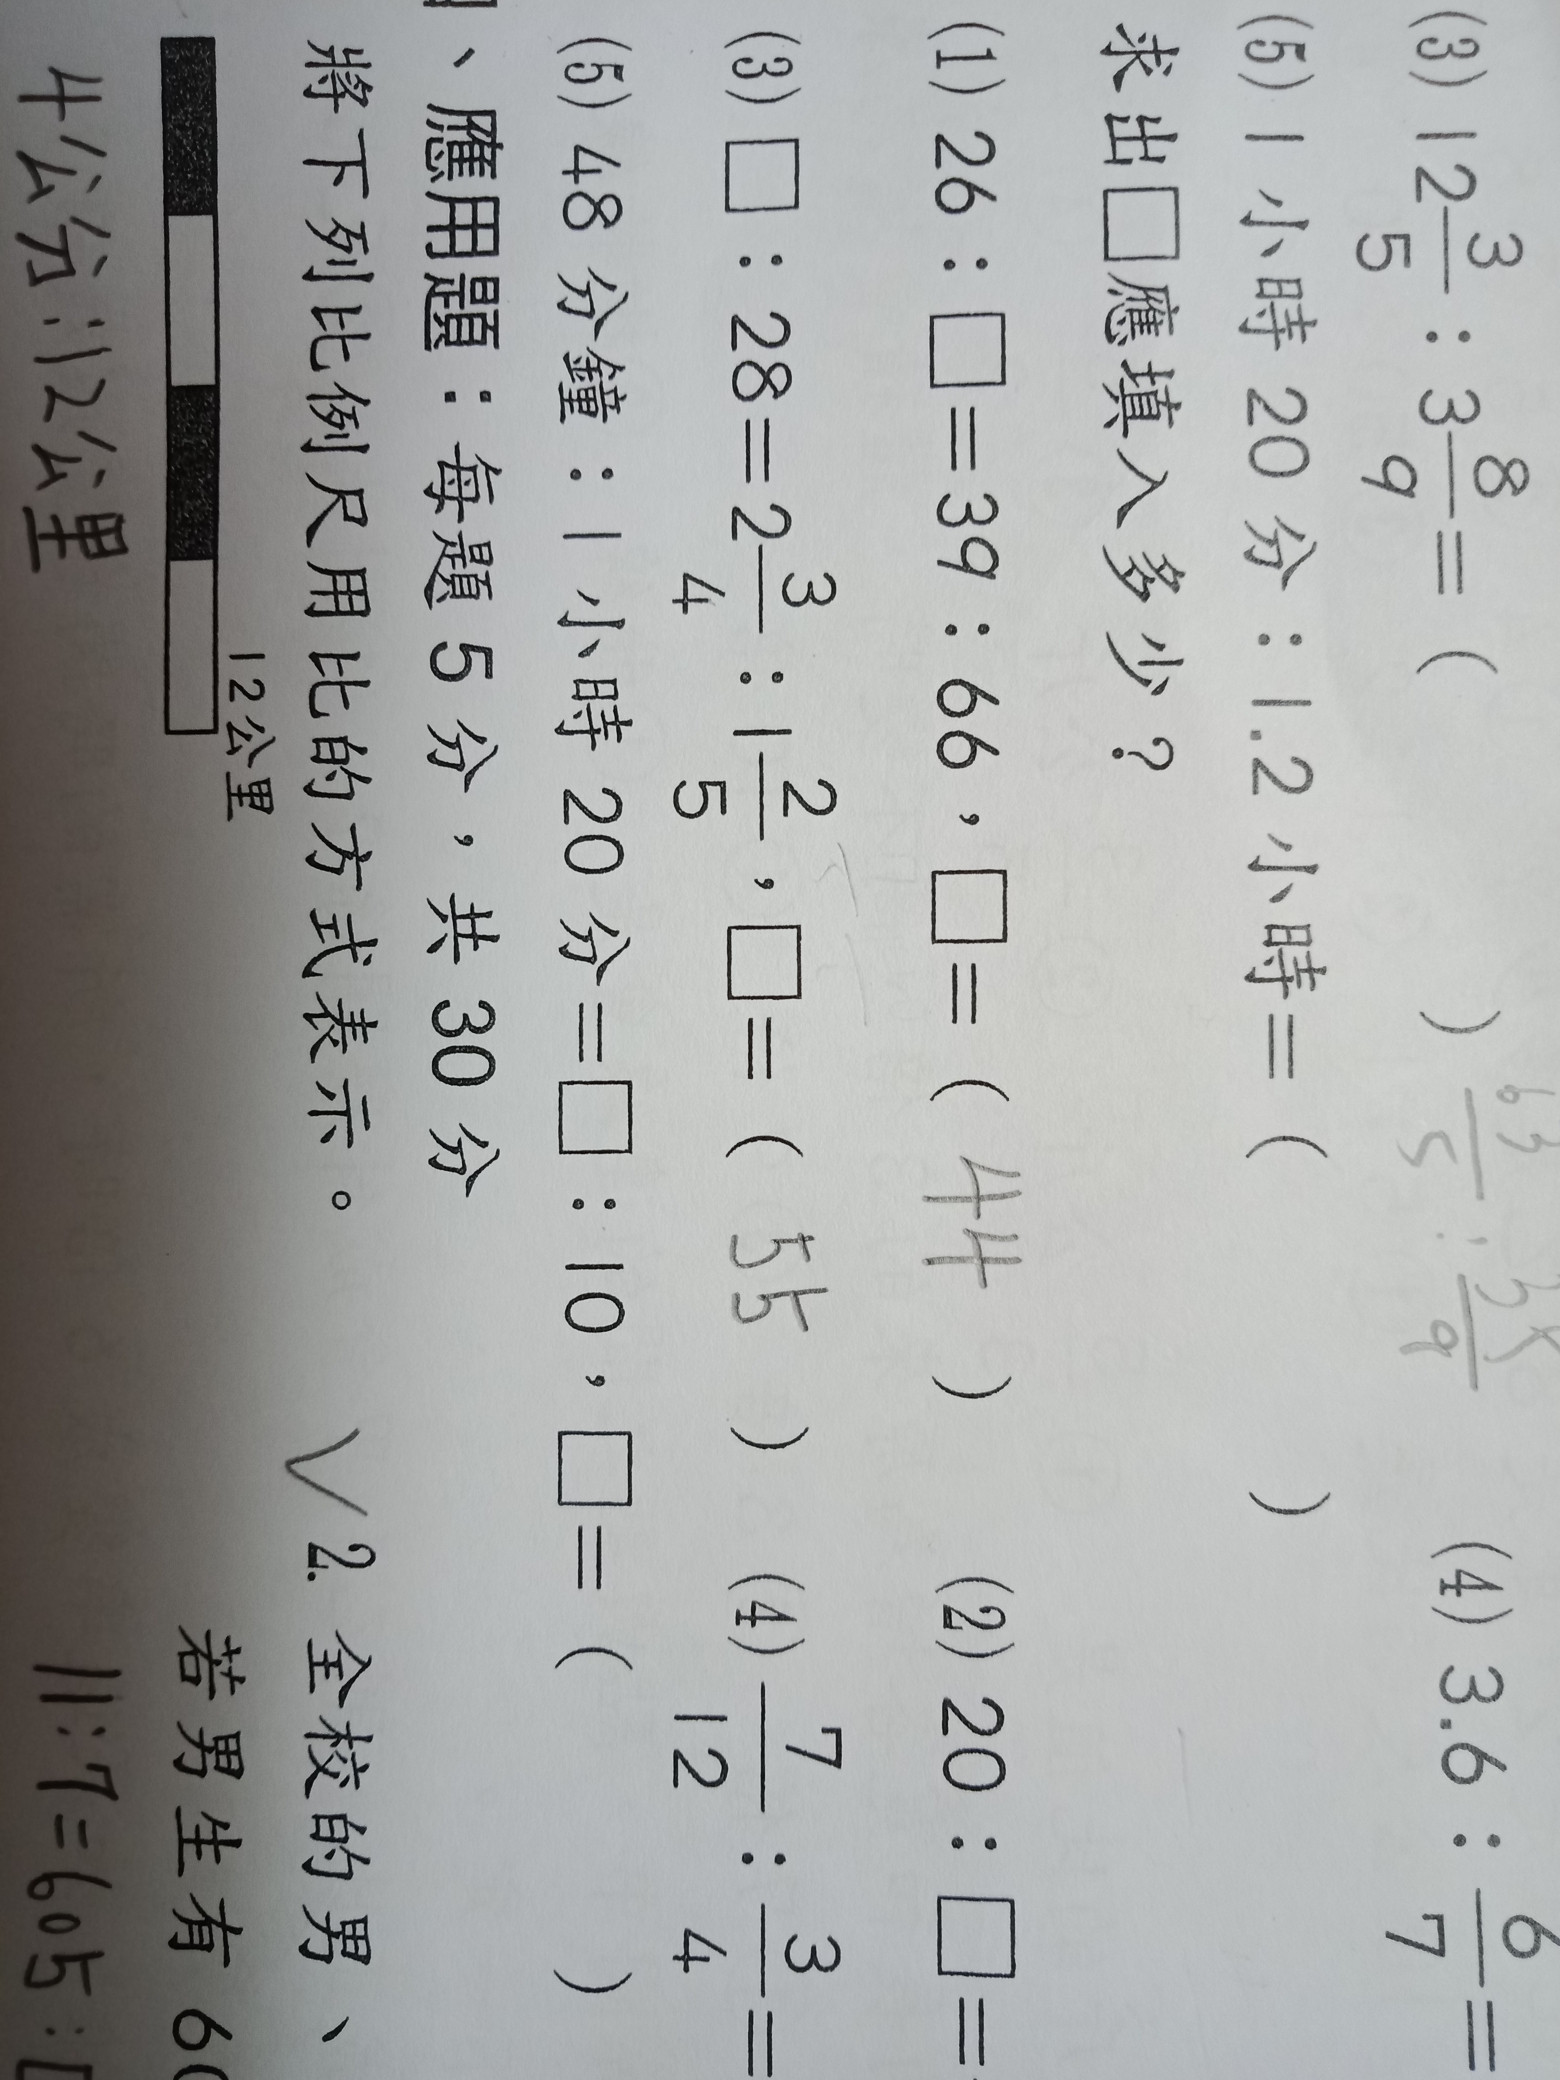 (3) 12 3/5 : 3 8/9 = (　　) 63/5 : 35/9　(4) 3.6 : 6/7 =
(5) 1小時20分 : 1.2小時 = (　　)
求出□應填入多少?
(1) 26 : □ = 39 : 66，□ = ( 44 )　(2) 20 : □ =
(3) □ : 28 = 2 3/4 : 1 2/5，□ = ( 55 )　(4) 7/12 : 3/4 =
(5) 48分鐘 : 1小時20分 = □ : 10，□ = (　　)
、應用題：每題5分，共30分
將下列比例尺用比的方式表示。　✓2. 全校的男、
12公里　若男生有60
4公分:12公里　11:7=605:□